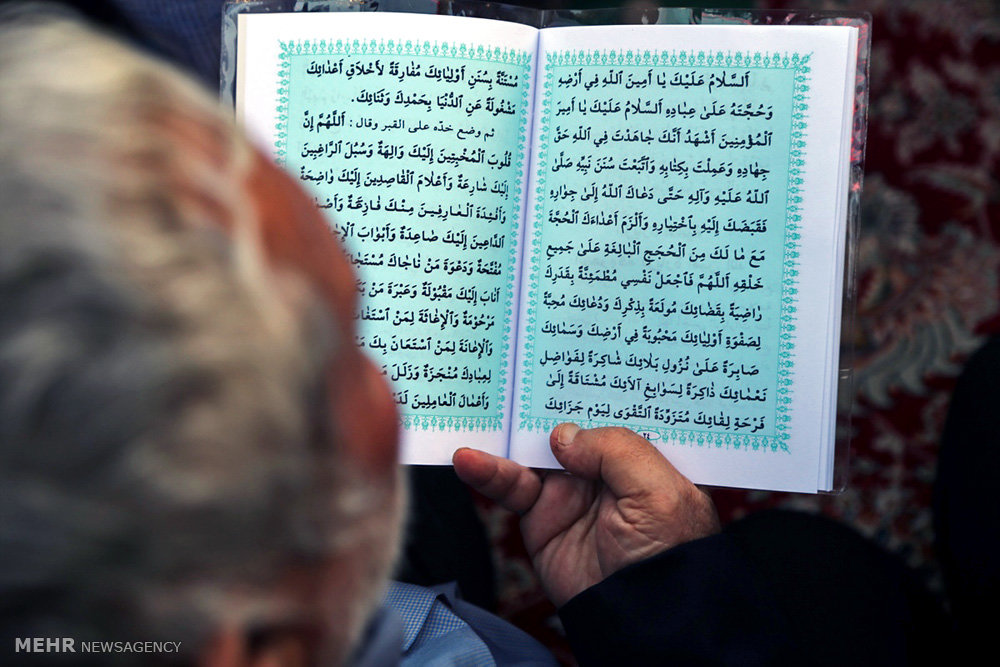 اَلسَّلَامُ عَلَيْكَ يَا أَمِينَ اللهِ فِي أَرْضِهِ
وَحُجَّتَهُ عَلَىٰ عِبَادِهِ اَلسَّلَامُ عَلَيْكَ يَا أَمِيرَ
الْمُؤْمِنِينَ أَشْهَدُ أَنَّكَ جَاهَدْتَ فِي اللهِ حَقَّ
جِهَادِهِ وَعَمِلْتَ بِكِتَابِهِ وَاتَّبَعْتَ سُنَنَ نَبِيِّهِ صَلَّى
اللهُ عَلَيْهِ وَآلِهِ حَتَّىٰ دَعَاكَ اللهُ إِلَىٰ جِوَارِهِ
فَقَبَضَكَ إِلَيْهِ بِاخْتِيَارِهِ وَأَلْزَمَ أَعْدَاءَكَ الْحُجَّةَ
مَعَ مَا لَكَ مِنَ الْحُجَجِ الْبَالِغَةِ عَلَىٰ جَمِيعِ
خَلْقِهِ اَللّٰهُمَّ فَاجْعَلْ نَفْسِي مُطْمَئِنَّةً بِقَدَرِكَ
رَاضِيَةً بِقَضَائِكَ مُولَعَةً بِذِكْرِكَ وَدُعَائِكَ مُحِبَّةً
لِصَفْوَةِ أَوْلِيَائِكَ مَحْبُوبَةً فِي أَرْضِكَ وَسَمَائِكَ
صَابِرَةً عَلَىٰ نُزُولِ بَلَائِكَ شَاكِرَةً لِفَوَاضِلِ
نَعْمَائِكَ ذَاكِرَةً لِسَوَابِغِ آلَائِكَ مُشْتَاقَةً إِلَىٰ
فَرْحَةِ لِقَائِكَ مُتَزَوِّدَةً التَّقْوَىٰ لِيَوْمِ جَزَائِكَ
مُسْتَنَّةً بِسُنَنِ أَوْلِيَائِكَ مُفَارِقَةً لِأَخْلَاقِ أَعْدَائِكَ
مَشْغُولَةً عَنِ الدُّنْيَا بِحَمْدِكَ وَثَنَائِكَ.
ثم وضع خدّه على القبر وقال : اَللّٰهُمَّ إِنَّ
قُلُوبَ الْمُخْبِتِينَ إِلَيْكَ وَالِهَةٌ وَسُبُلَ الرَّاغِبِينَ
إِلَيْكَ شَارِعَةٌ وَأَعْلَامَ الْقَاصِدِينَ إِلَيْكَ وَاضِحَةٌ
وَأَفْئِدَةَ الْعَارِفِينَ مِنْكَ فَازِعَةٌ
الدَّاعِينَ إِلَيْكَ صَاعِدَةٌ وَأَبْوَابَ
مُفَتَّحَةٌ وَدَعْوَةَ مَنْ نَاجَاكَ
أَنَابَ إِلَيْكَ مَقْبُولَةٌ وَعَبْرَةَ مَنْ
مَرْحُومَةٌ وَالْإِغَاثَةَ لِمَنِ
وَالْإِعَانَةَ لِمَنِ اسْتَعَانَ بِكَ
لِعِبَادِكَ مُنْجَزَةٌ وَزَلَلَ
وَأَعْمَالَ الْعَامِلِينَ
MEHR NEWSAGENCY